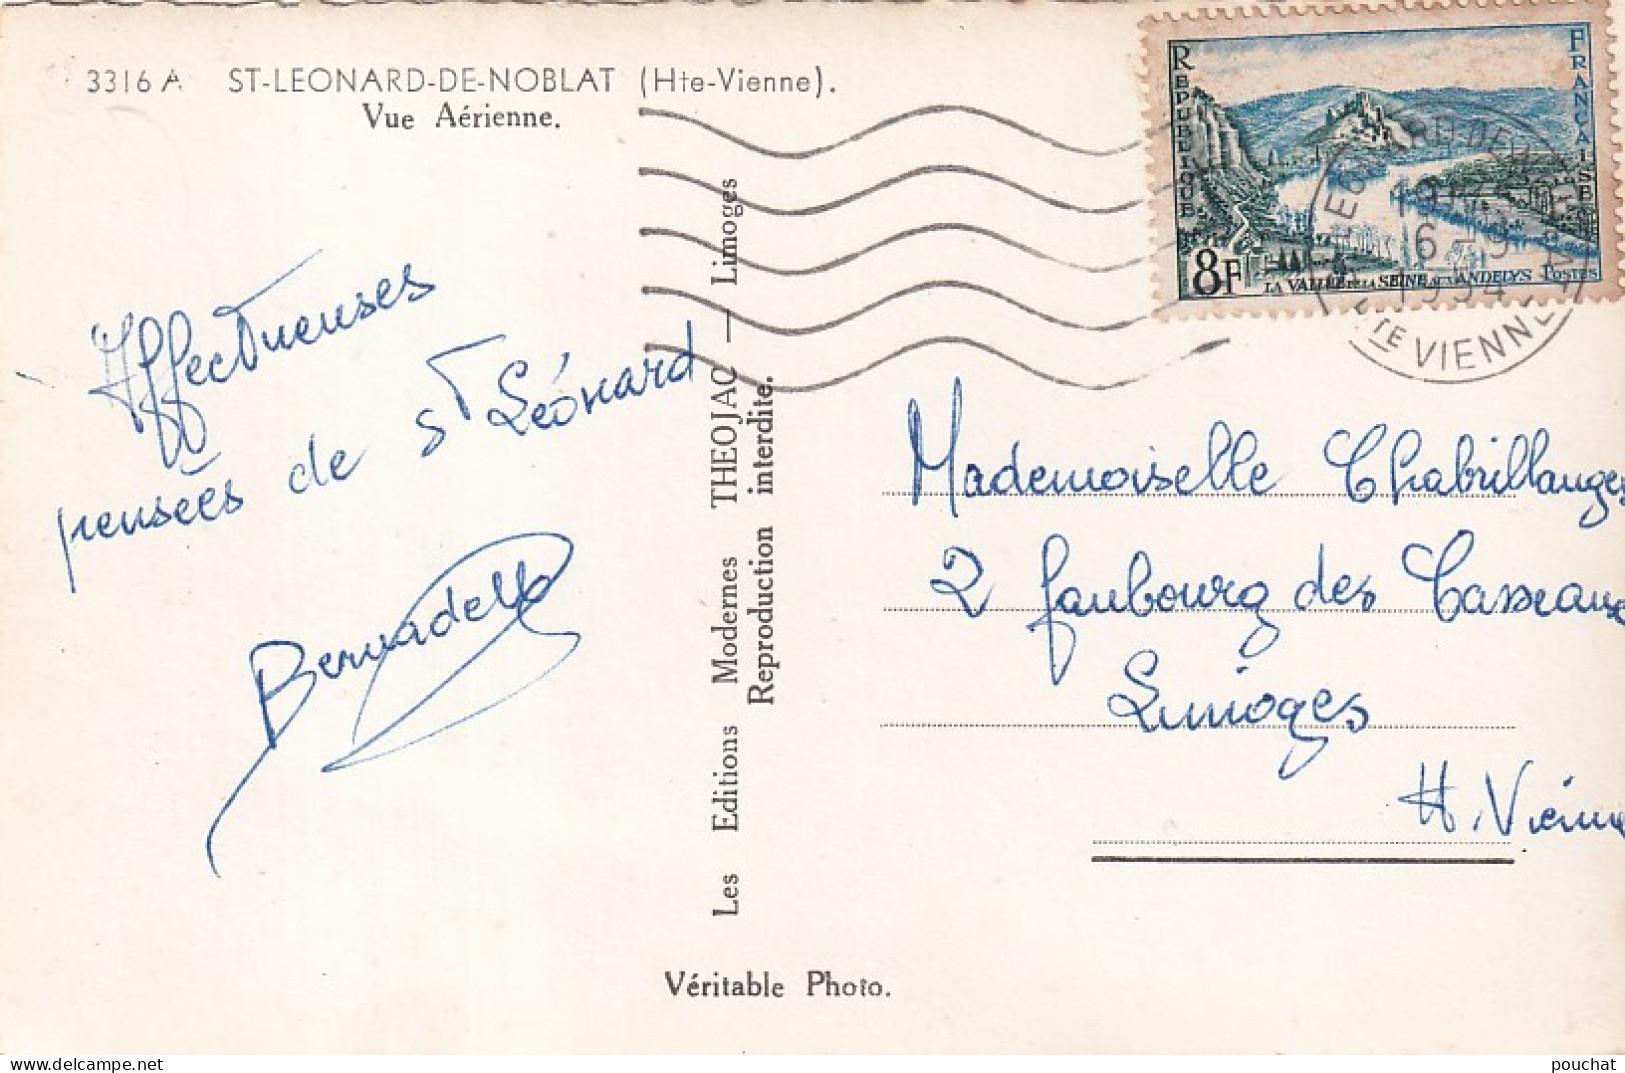 3316 A ST-LEONARD-DE-NOBLAT (Hte-Vienne).
Vue Aérienne.
Affectueuses
pensées de St Léonard
Bernadette
Les Editions Modernes THEOJAC — Limoges
Reproduction interdite.
REPUBLIQUE
FRANCAISE
8F
LA VALLEE DE LA SEINE AUX ANDELYS POSTES
6-9
1954
HTE VIENNE
Mademoiselle Chabrillanges
2 faubourg des Casseaux
Limoges
Ht. Vienne
Véritable Photo.
pouchat
delcampe.net